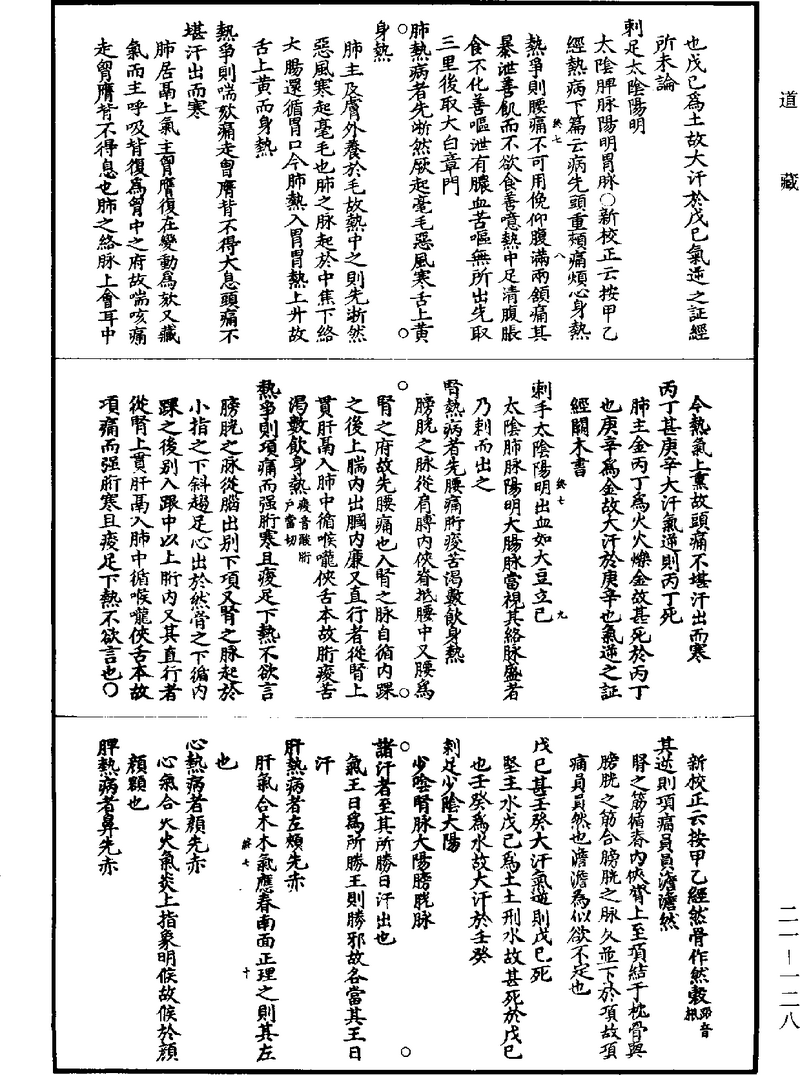 道藏
也戊己為土故大汗於戊己氣逆之証經
所未論
刺足太陰陽明
太陰脾脉陽明胃脉○新校正云按甲乙
經熱病下篇云病先頭重頰痛煩心身熱
熱爭則腰痛不可用俛仰腹滿兩頷痛其
暴泄善飢而不欲食善噫熱中足清腹脹
食不化善嘔泄有膿血苦嘔無所出先取
三里後取大白章門
肺熱病者先淅然厥起毫毛惡風寒舌上黃
身熱
肺主皮膚外養於毛故熱中之則先淅然
惡風寒起毫毛也肺之脉起於中焦下絡
大腸還循胃口今肺熱入胃胃熱上升故
舌上黃而身熱
熱爭則喘欬痛走胷膺背不得大息頭痛不
堪汗出而寒
肺居鬲上氣主胷膺復在變動為欬又藏
氣而主呼吸背復為胷中之府故喘咳痛
走胷膺背不得息也肺之絡脉上會耳中
今熱氣上熏故頭痛不堪汗出而寒
丙丁甚庚辛大汗氣逆則丙丁死
肺主金丙丁為火火爍金故甚死於丙丁
也庚辛為金故大汗於庚辛也氣逆之証
經闕木書
刺手太陰陽明出血如大豆立已
太陰肺脉陽明大腸脉當視其絡脉盛者
乃刺而出之
腎熱病者先腰痛䯒痠苦渴數飲身熱
膀胱之脉從肩髆內俠脊抵腰中又腰為
腎之府故先腰痛也入腎之脉自循內踝
之後上腨內出膕內廉又直行者從腎上
貫肝鬲入肺中循喉嚨俠舌本故䯒痠苦
渴數飲身熱痠音酸䯒戶當切
熱爭則項痛而强䯒寒且痠足下熱不欲言
膀胱之脉從腦出别下項又腎之脉起於
小指之下斜趨足心出於然骨之下循內
踝之後别入跟中以上䯒內又其直行者
從腎上貫肝鬲入肺中循喉嚨俠舌本故
項痛而强䯒寒且痠足下熱不欲言也○
新校正云按甲乙經然骨作然穀
其逆則項痛員員澹澹然
腎之筋循脊內俠膂上至項結于枕骨與
膀胱之筋合膀胱之脉又並下於項故項
痛員員然也澹澹為似欲不定也
戊己甚壬癸大汗氣逆則戊己死
腎主水戊己為土土刑水故甚死於戊己
也壬癸為水故大汗於壬癸
刺足少陰太陽
少陰腎脉太陽膀胱脉
諸汗者至其所勝日汗出也
氣王日為所勝王則勝邪故各當其王日
汗
肝熱病者左頰先赤
肝氣合木木氣應春南面正理之則其左
也
心熱病者顏先赤
心氣合火火氣炎上指象明候故候於顏
顏額也
脾熱病者鼻先赤
二一－一二八